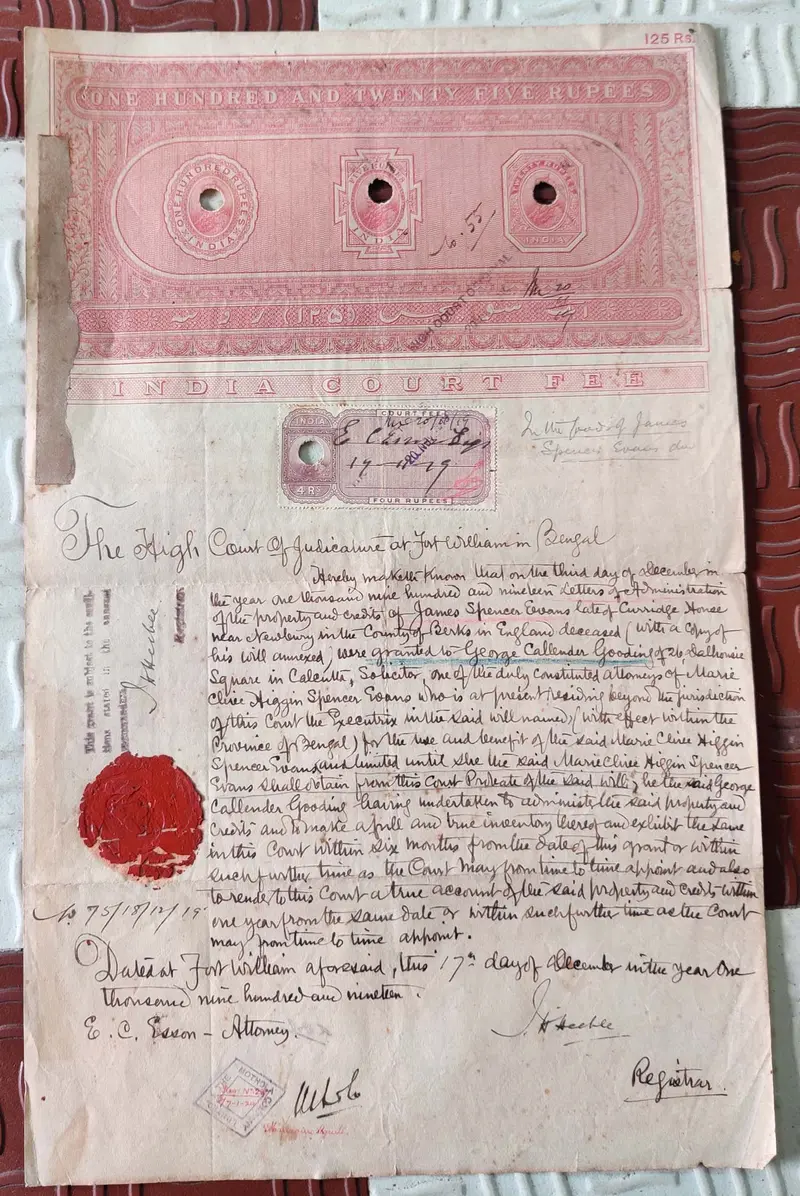 125 Rs.
ONE HUNDRED AND TWENTY FIVE RUPEES
ONE HUNDRED RUPEES
INDIA
FIVE RUPEES
INDIA
TWENTY RUPEES
INDIA
No. 55
HIGH COURT
20
19
(۱۲۵)
INDIA COURT FEE
COURT FEE
INDIA
4 R
17-11-19
FOUR RUPEES
In the goods of James
Spencer Evans
The High Court of Judicature at Fort William in Bengal
Hereby maketh known that on the third day of December in
the year one thousand nine hundred and nineteen Letters of Administration
of the property and credits of James Spencer Evans late of Curridge House
near Newbury in the County of Berks in England deceased (with a copy of
his will annexed) were granted to George Callender Gooding of 26, Dalhousie
Square in Calcutta, Solicitor, one of the duly constituted attorneys of Marie
Cliree Higgin Spencer Evans who is at present residing beyond the jurisdiction
of this Court the Executrix in the said will named, (with effect within the
Province of Bengal) for the use and benefit of the said Marie Cliree Higgin
Spencer Evans and limited until she the said Marie Cliree Higgin Spencer
Evans shall obtain from this Court Probate of the said will, he the said George
Callender Gooding having undertaken to administer the said property and
credits and to make a full and true inventory thereof and exhibit the same
in this Court within six months from the date of this grant or within
such further time as the Court may from time to time appoint and also
to render to this Court a true account of the said property and credits within
one year from the same date or within such further time as the Court
may from time to time appoint.
This grant is subject to the
stated in the annexed
Registrar
No 75/18/12/19
Dated at Fort William aforesaid, this 17th day of December in the year One
thousand nine hundred and nineteen.
E. C. Esson - Attorney.
Registrar.